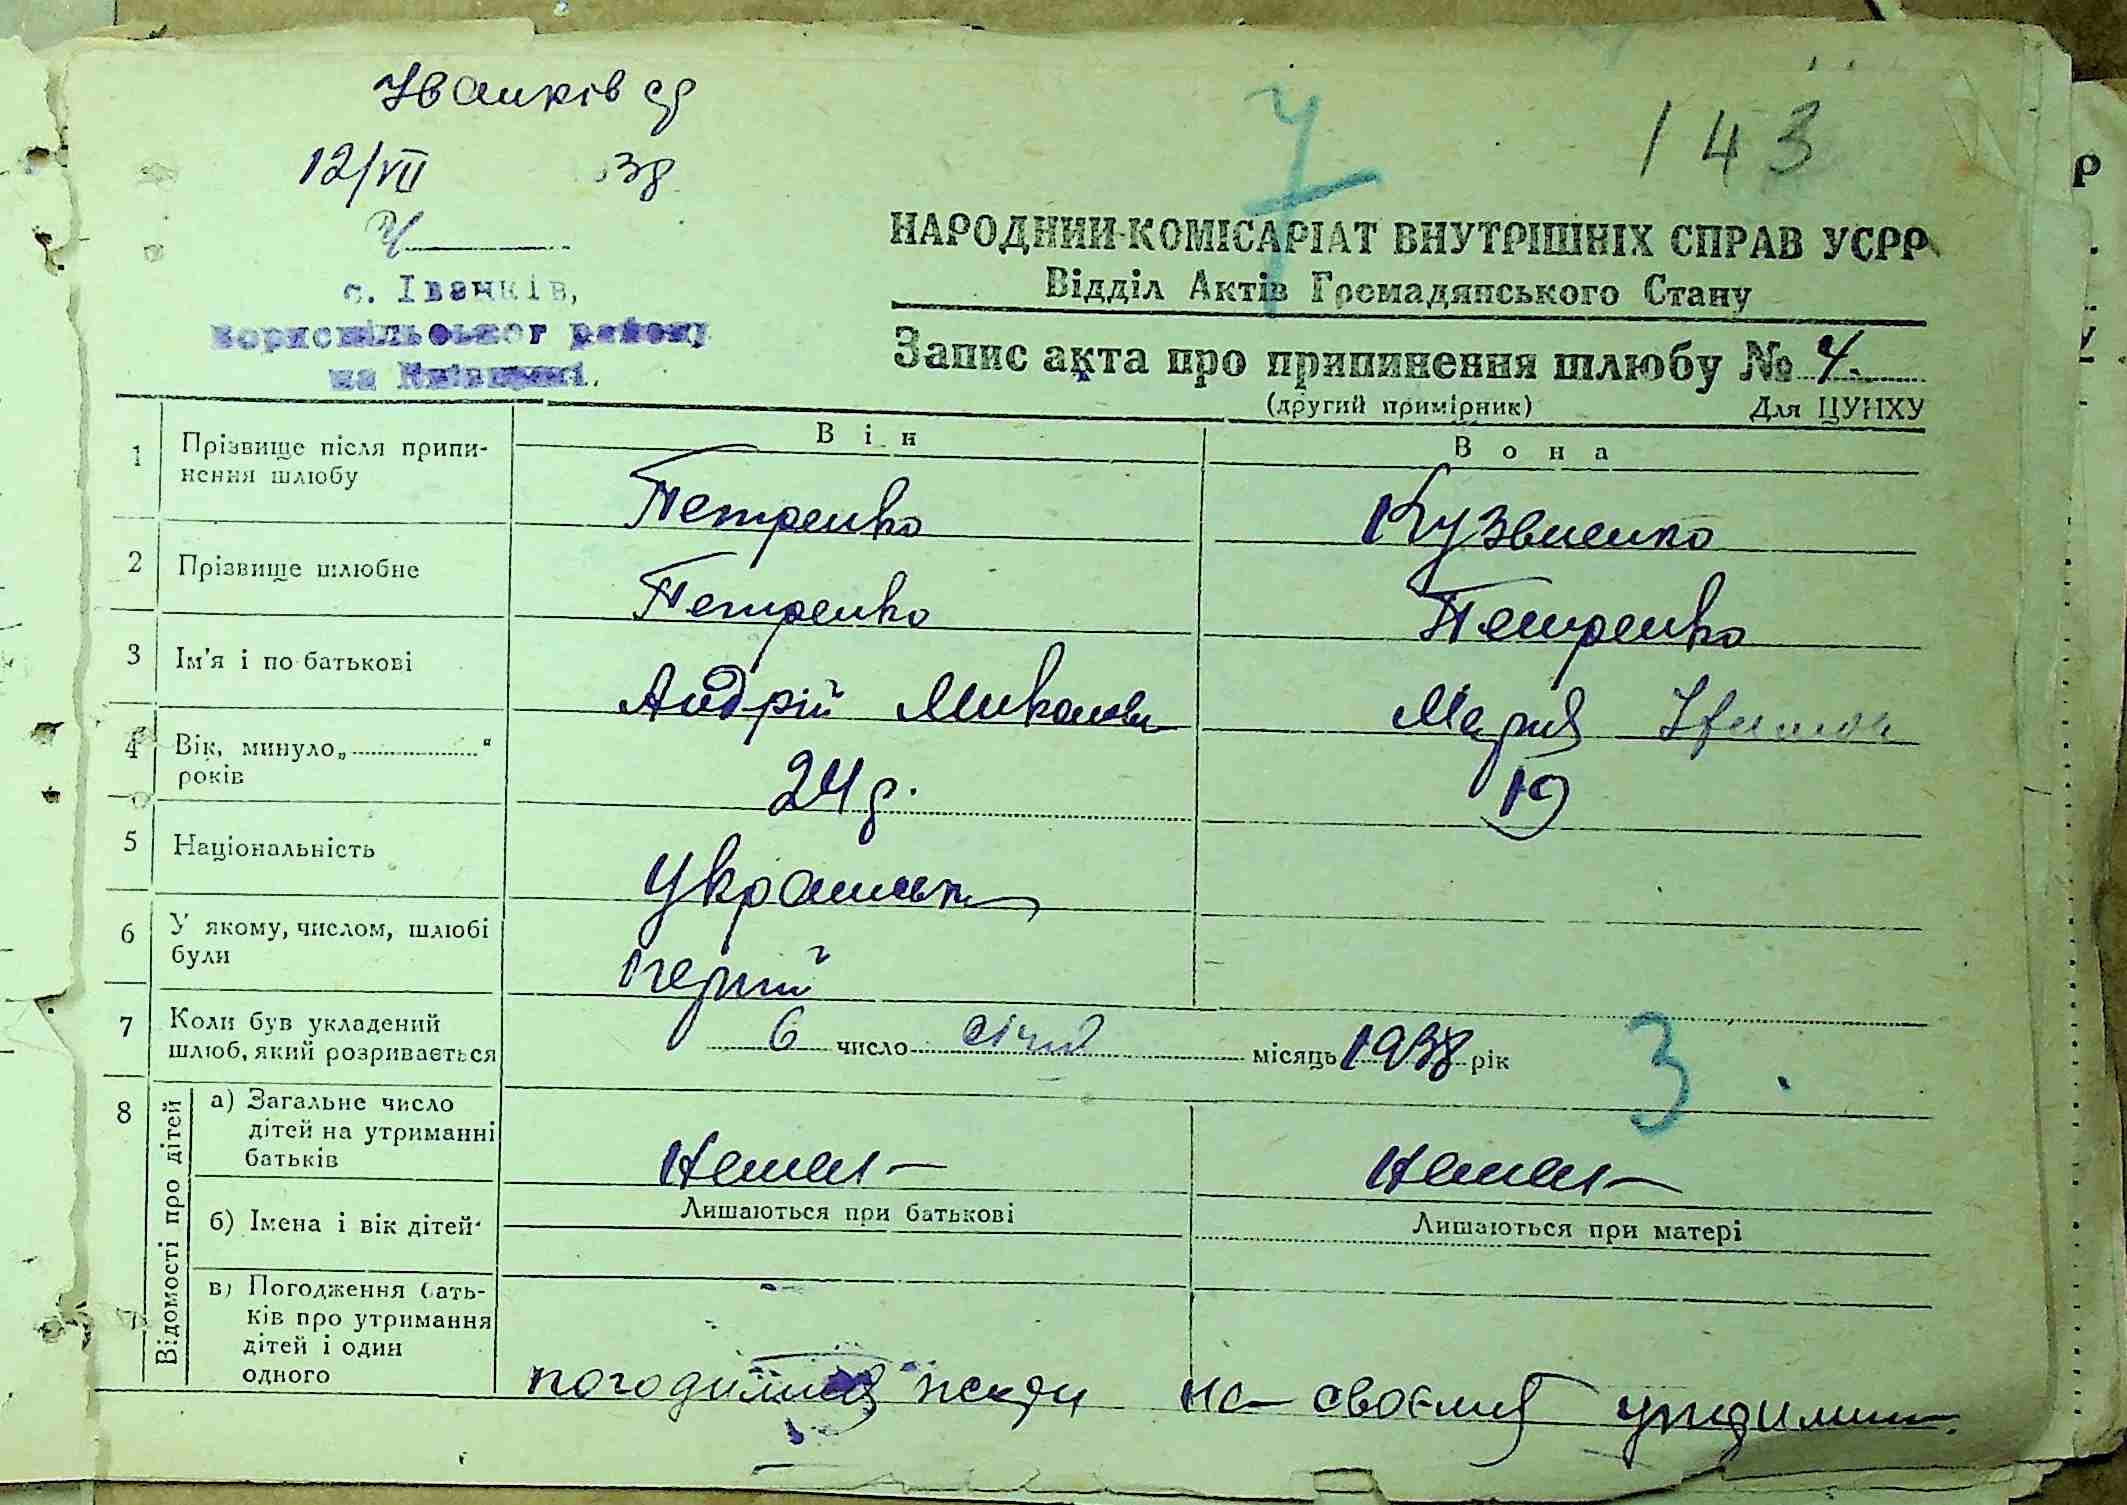 Іванків ср
12/VII 38
4
с. Іванків,
Бориспільського району
на Київщині.
7
143
НАРОДНИЙ КОМІСАРІАТ ВНУТРІШНІХ СПРАВ УСРР
Відділ Актів Громадянського Стану
Запис акта про припинення шлюбу № 4.
(другий примірник) Для ЦУНХУ
Він Вона
1 Прізвище після припи-
нення шлюбу
Петренко Кузьменко
2 Прізвище шлюбне Петренко Петренко
3 Ім'я і по батькові Андрій Миколови Мария
4 Вік, минуло „ “
років
24 р. 19
5 Національність
6 У якому, числом, шлюбі
були
перший
7 Коли був укладений
шлюб, який розривається
6 число січня місяць 1938 рік
3
8 Відомості про дітей
а) Загальне число
дітей на утриманні
батьків
Немає Немає
б) Імена і вік дітей
Лишаються при батькові Лишаються при матері
в) Погодження бать-
ків про утримання
дітей і один
одного
на своєму